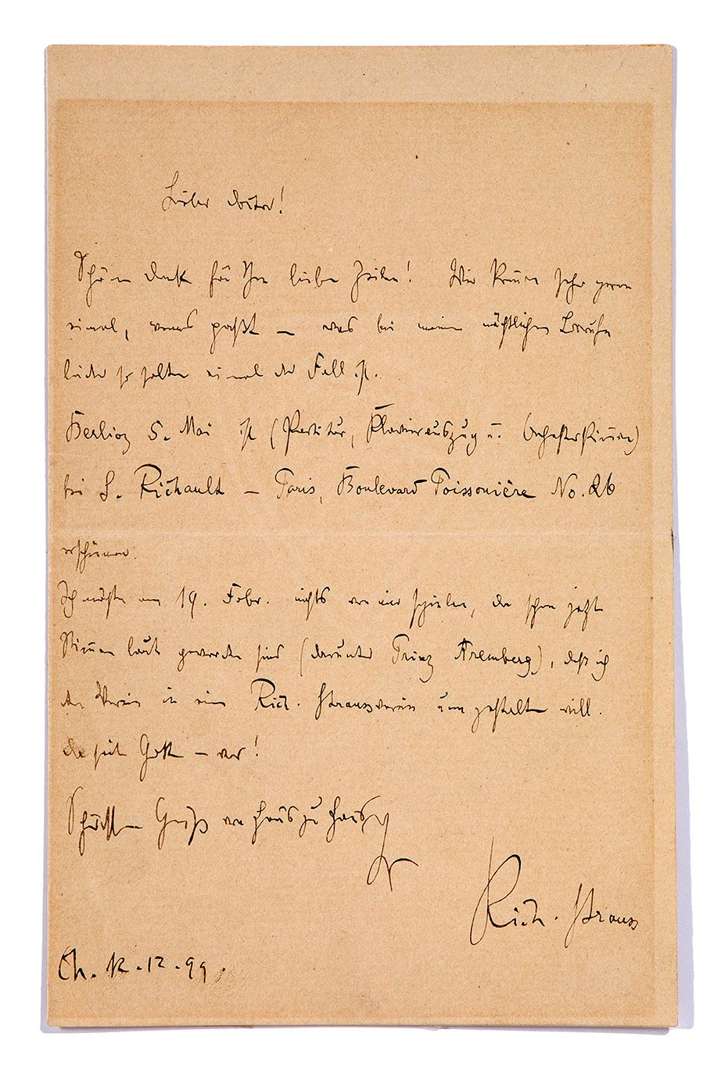 Lieber Doctor!
Schönen Dank für Ihre lieben Zeilen! Wir kommen sehr gerne
einmal, wenns paßt – was bei meinem nächtlichen Berufe
leider so selten einmal der Fall ist.
Berlioz 5. Mai ist (Partitur, Klavierauszug u. Orchesterstimmen)
bei S. Richault – Paris, Boulevard Poissonière No. 26
erschienen.
Ich möchte am 19. Febr. nichts von mir spielen, da schon jetzt
Stimmen laut geworden sind (darunter Prinz Aremberg), daß ich
den Verein in einen Rich. Straussverein umgestalten will.
Da sei Gott – vor!
Schönsten Gruß von Haus zu Haus
Ihr
Rich. Strauss
Ch. 12.12.99.